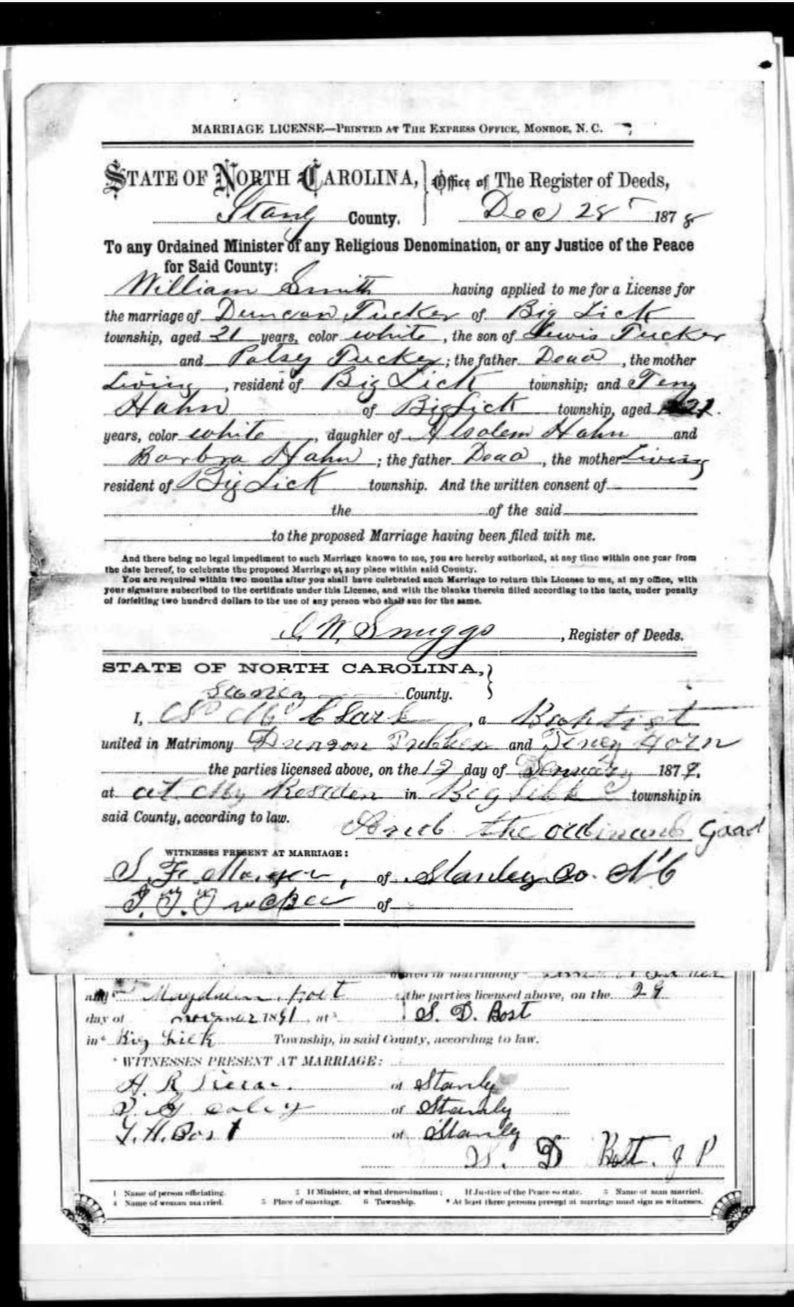 MARRIAGE LICENSE—PRINTED AT THE EXPRESS OFFICE, MONROE, N. C.
STATE OF NORTH CAROLINA, Office of The Register of Deeds,
Stanly County. Dec 28 1878
To any Ordained Minister of any Religious Denomination, or any Justice of the Peace
for Said County:
William Smith having applied to me for a License for
the marriage of Duncan Tucker of Big Lick
township, aged 21 years, color white, the son of Lewis Tucker
and Patsy Tucker; the father Dead, the mother
Living, resident of Big Lick township; and Teny
Hahn of Big Lick township, aged 21.
years, color white, daughter of Hahn and
Barbra Hahn; the father Dead, the mother Living
resident of Big Lick township. And the written consent of
the of the said
to the proposed Marriage having been filed with me.
And there being no legal impediment to such Marriage known to me, you are hereby authorized, at any time within one year from
the date hereof, to celebrate the proposed Marriage at any place within said County.
You are required within two months after you shall have celebrated such Marriage to return this License to me, at my office, with
your signature subscribed to the certificate under this License, and with the blanks therein filled according to the facts, under penalty
of forfeiting two hundred dollars to the use of any person who shall sue for the same.
Snuggs, Register of Deeds.
STATE OF NORTH CAROLINA,
County.
I, Clark, a Baptist
united in Matrimony and Horn
the parties licensed above, on the day of January 1879.
at at My Residen in township in
said County, according to law.
the
WITNESSES PRESENT AT MARRIAGE:
S. F. of Stanley Co. N C
of
united in matrimony
and Magdalen the parties licensed above, on the 29
day of 1891, at S. D. Bost
in Big Lick Township, in said County, according to law.
* WITNESSES PRESENT AT MARRIAGE:
A. R. of Stanly
of Stanly
Bost of Stanly
D Bost. J P
1 Name of person officiating. 2 If Minister, of what denomination; If Justice of the Peace so state. 3 Name of man married.
4 Name of woman married. 5 Place of marriage. 6 Township. * At least three persons present at marriage must sign as witnesses.